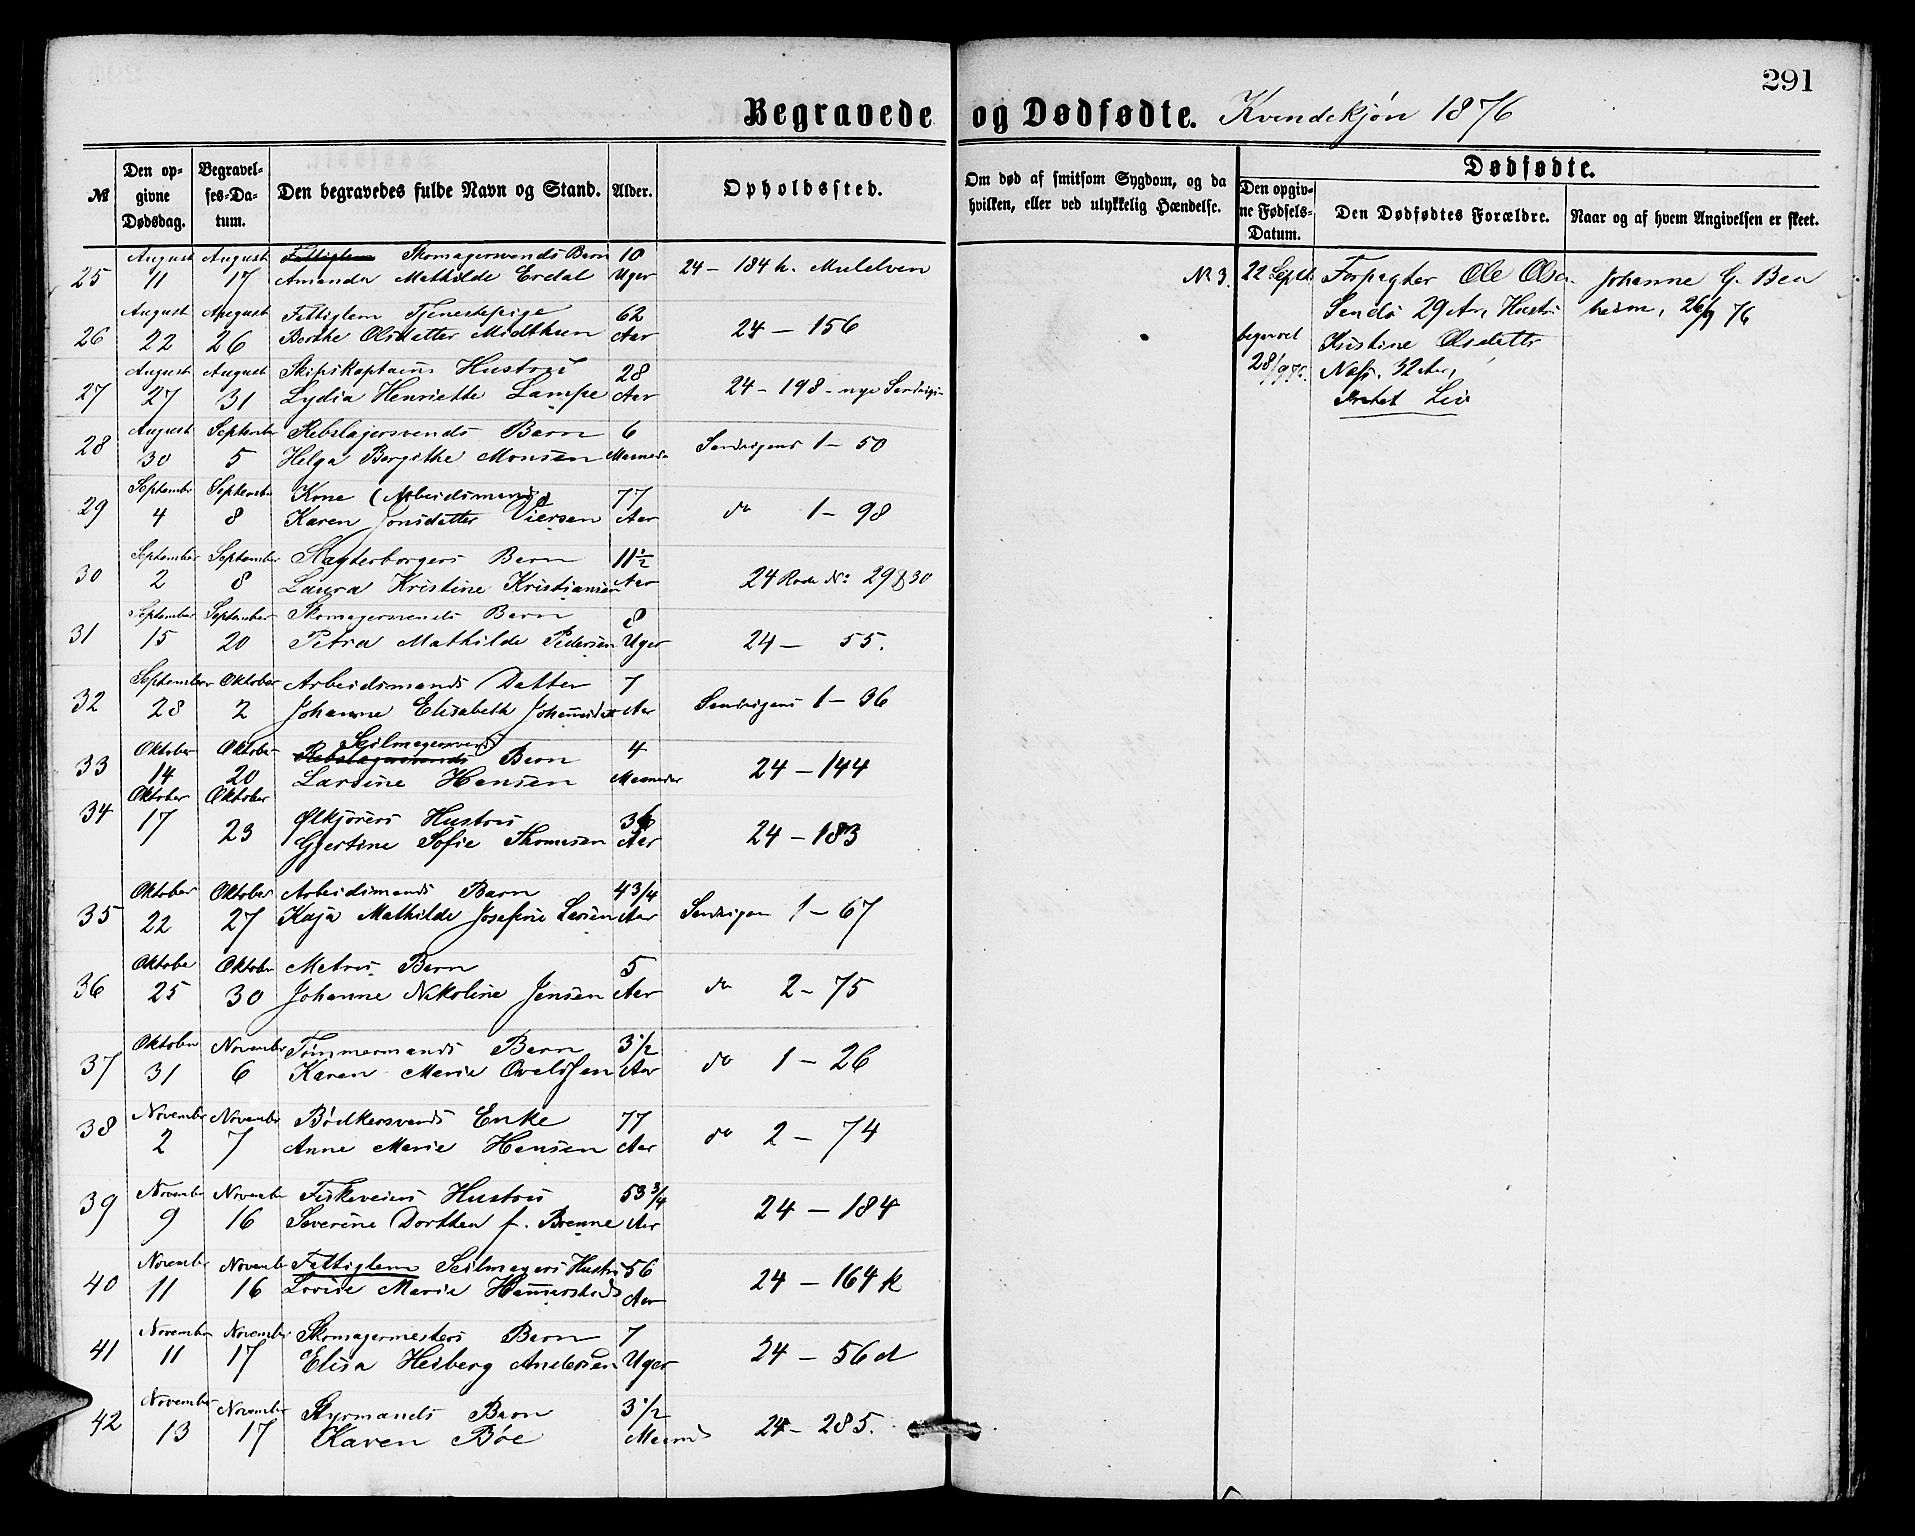 291
Begravede og Dødfødte. Kvindekjøn 1876
№ Den opgivne Dødsdag. Begravelses-Datum. Den begravedes fulde Navn og Stand. Alder. Opholdssted. Om død af smitsom Sygdom, og da hvilken, eller ved ulykkelig Hændelse.
Dødfødte.
Den opgivne Fødsels-Datum. Den Dødfødtes Forældre. Naar og af hvem Angivelsen er skeet.
August August Fattiglem Skomagersvends Barn 10
25 11 17 Amanda Mathilde Erdal Uger 24 - 184 h. Mulelven
August August Fattiglem Tjenestepige 62
26 22 26 Berthe Olsdatter Midthun Aar 24 - 156
August August Skipskaptains Hustru 28
27 27 31 Lydia Henriette Lampe Aar 24 - 198 - nye
August September Rebslagersvends Barn 6
28 30 5 Helga Bergithe Monsen Maaneder Sandvigens 1 - 50
September September Kone (Arbeidsmands)
29 4 8 Karen Jonsdatter 77 Aar do 1 - 98
September September Slagterborgers Barn 11½
30 2 8 Laura Kristine Kristiansen Aar 24 Rode No 29 & 30
September September Skomagersvends Barn 8
31 15 20 Petra Mathilde Pedersen Uger 24 - 55.
September Oktober Arbeidsmands Datter 7
32 28 2 Johanne Elisabeth Johannesdat Aar Sandvigens 1 - 36
Seilmagersvends
Oktober Oktober Rebslagersvends Barn 4
33 14 20 Lardine Hansen Maaneder 24 - 144
Oktober Oktober Ølkjørers Hustru 36
34 17 23 Gjertine Sofie Thomesen Aar 24 - 183
Oktober Oktober Arbeidsmands Barn 4 3/4
35 22 27 Kaja Mathilde Josefine Larsen Aar Sandvigen 1 - 67
Oktober Oktober Matros Barn 5
36 25 30 Johanne Nikoline Jensen Aar do 2 - 75
Oktober November Tømmermands Barn 3½
37 31 6 Karen Marie Aar do 1 - 26
November November Bødkersvends Enke 77
38 2 7 Anne Marie Hansen Aar do 2 - 74
November November Fiskeveiers Hustru 53 3/4
39 9 16 Severine Dorthea f. Brenne Aar 24 - 184
November November Fattiglem Seilmagers Hustru 56
40 11 16 Lovise Marie Aar 24 - 164 k
November November Skomagermesters Barn 7
41 11 17 Elisa Heiberg Andersen Uger 24 - 56 d
November November Styrmands Barn 3½
42 13 17 Karen Bøe Maaned 24 - 285.
№ 3. 22 Septb. Forpagter Ole Olsen Johanne G. Ben
Sandø 29 Ar, Hustru heim, 26/9 76
begravet Kristine Olsdatter
28/9 76. 32 Aar,